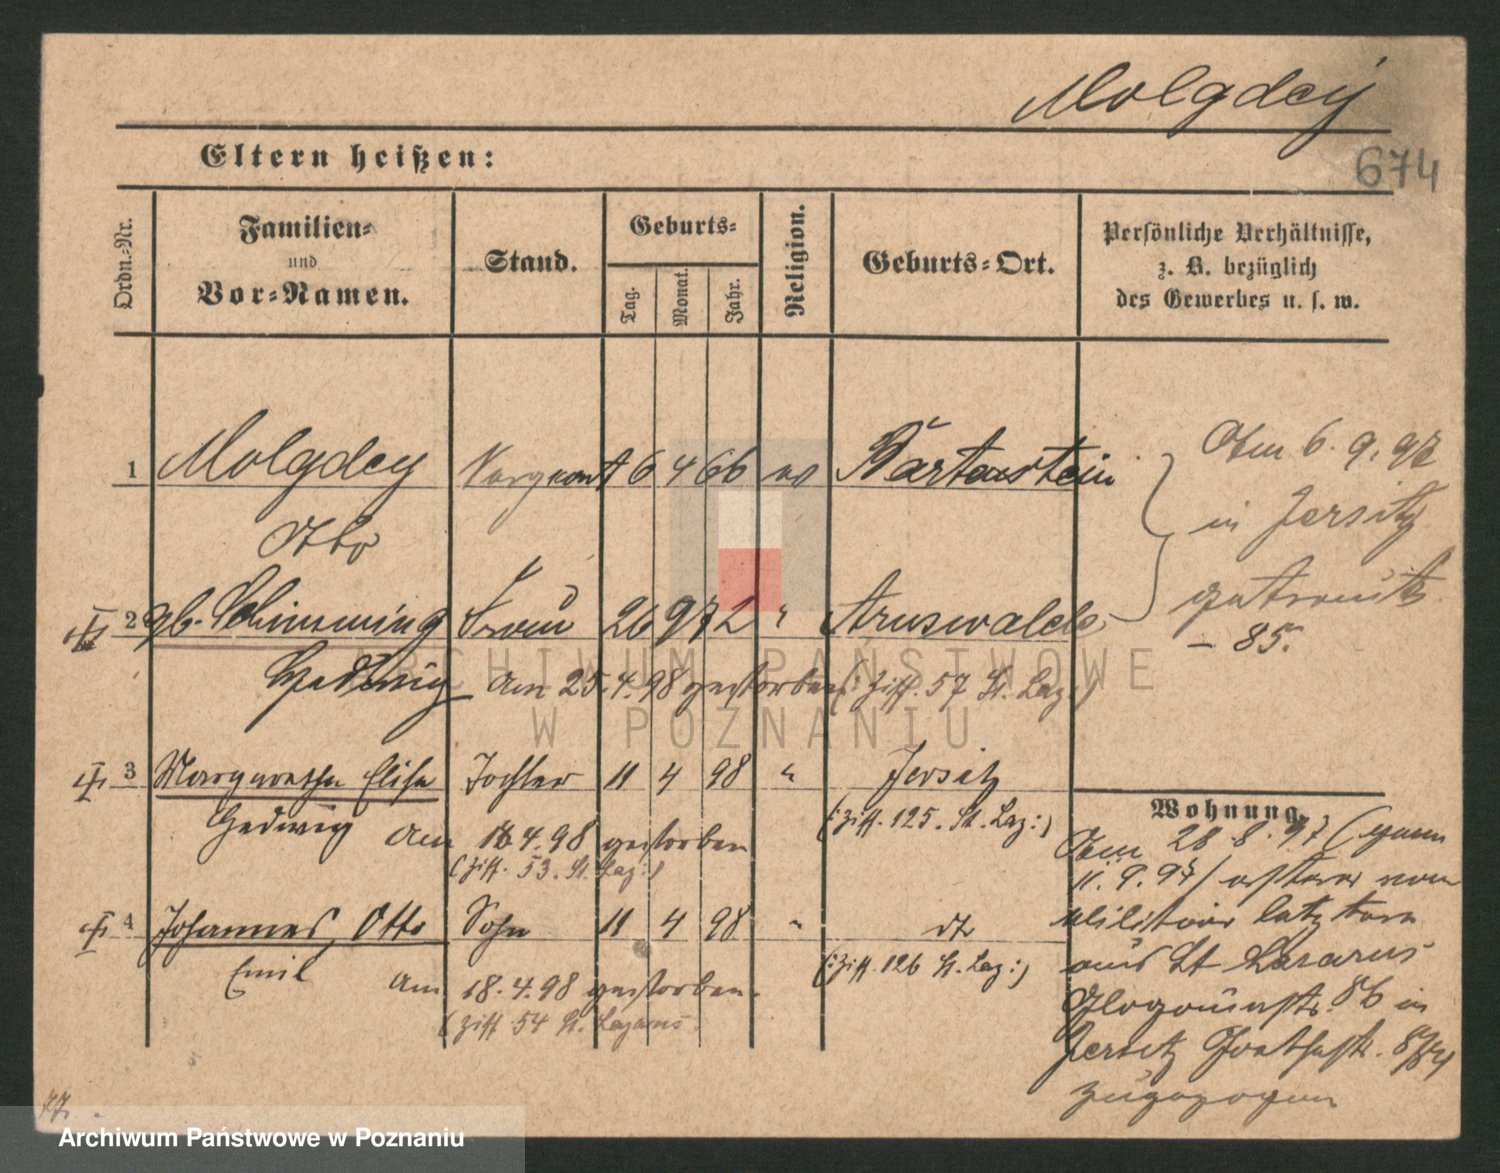 Molgdey
674
Eltern heißen:
Ordn.-Nr.
Familien-
und
Vor-Namen.
Stand.
Geburts-
Tag.
Monat.
Jahr.
Religion.
Geburts-Ort.
Persönliche Verhältnisse,
z. B. bezüglich
des Gewerbes u. s. w.
1 Molgdey Sergeant 6 4 66 ev Bartenstein
Otto
Am 6. 9. 97
in Jersitz
getraut
- 85.
2 gb. Schimming Frau 26 9 72 " Arnswalde
Hedwig Am 25.4.98 gestorben (: Ziff. 57 St. Laz:)
3 Margaretha Elisa Tochter 11 4 98 " Jersitz
Hedwig Am 18.4.98 gestorben (: Ziff. 125. St. Laz:)
(Ziff. 53. St. Laz:)
4 Johannes, Otto Sohn 11 4 98 " dto
Emil Am 18.4.98 gestorben. (: Ziff. 126 St. Laz:)
(Ziff 54 St. Lazarus.
Wohnung.
Am 28.8.97 (gem
11.9.97) ersterer vom
Militair letztere
aus St Lazarus
Glogauerstr. 86 in
Jersitz
zugezogen
77.
ARCHIWUM PAŃSTWOWE
W POZNANIU
Archiwum Państwowe w Poznaniu